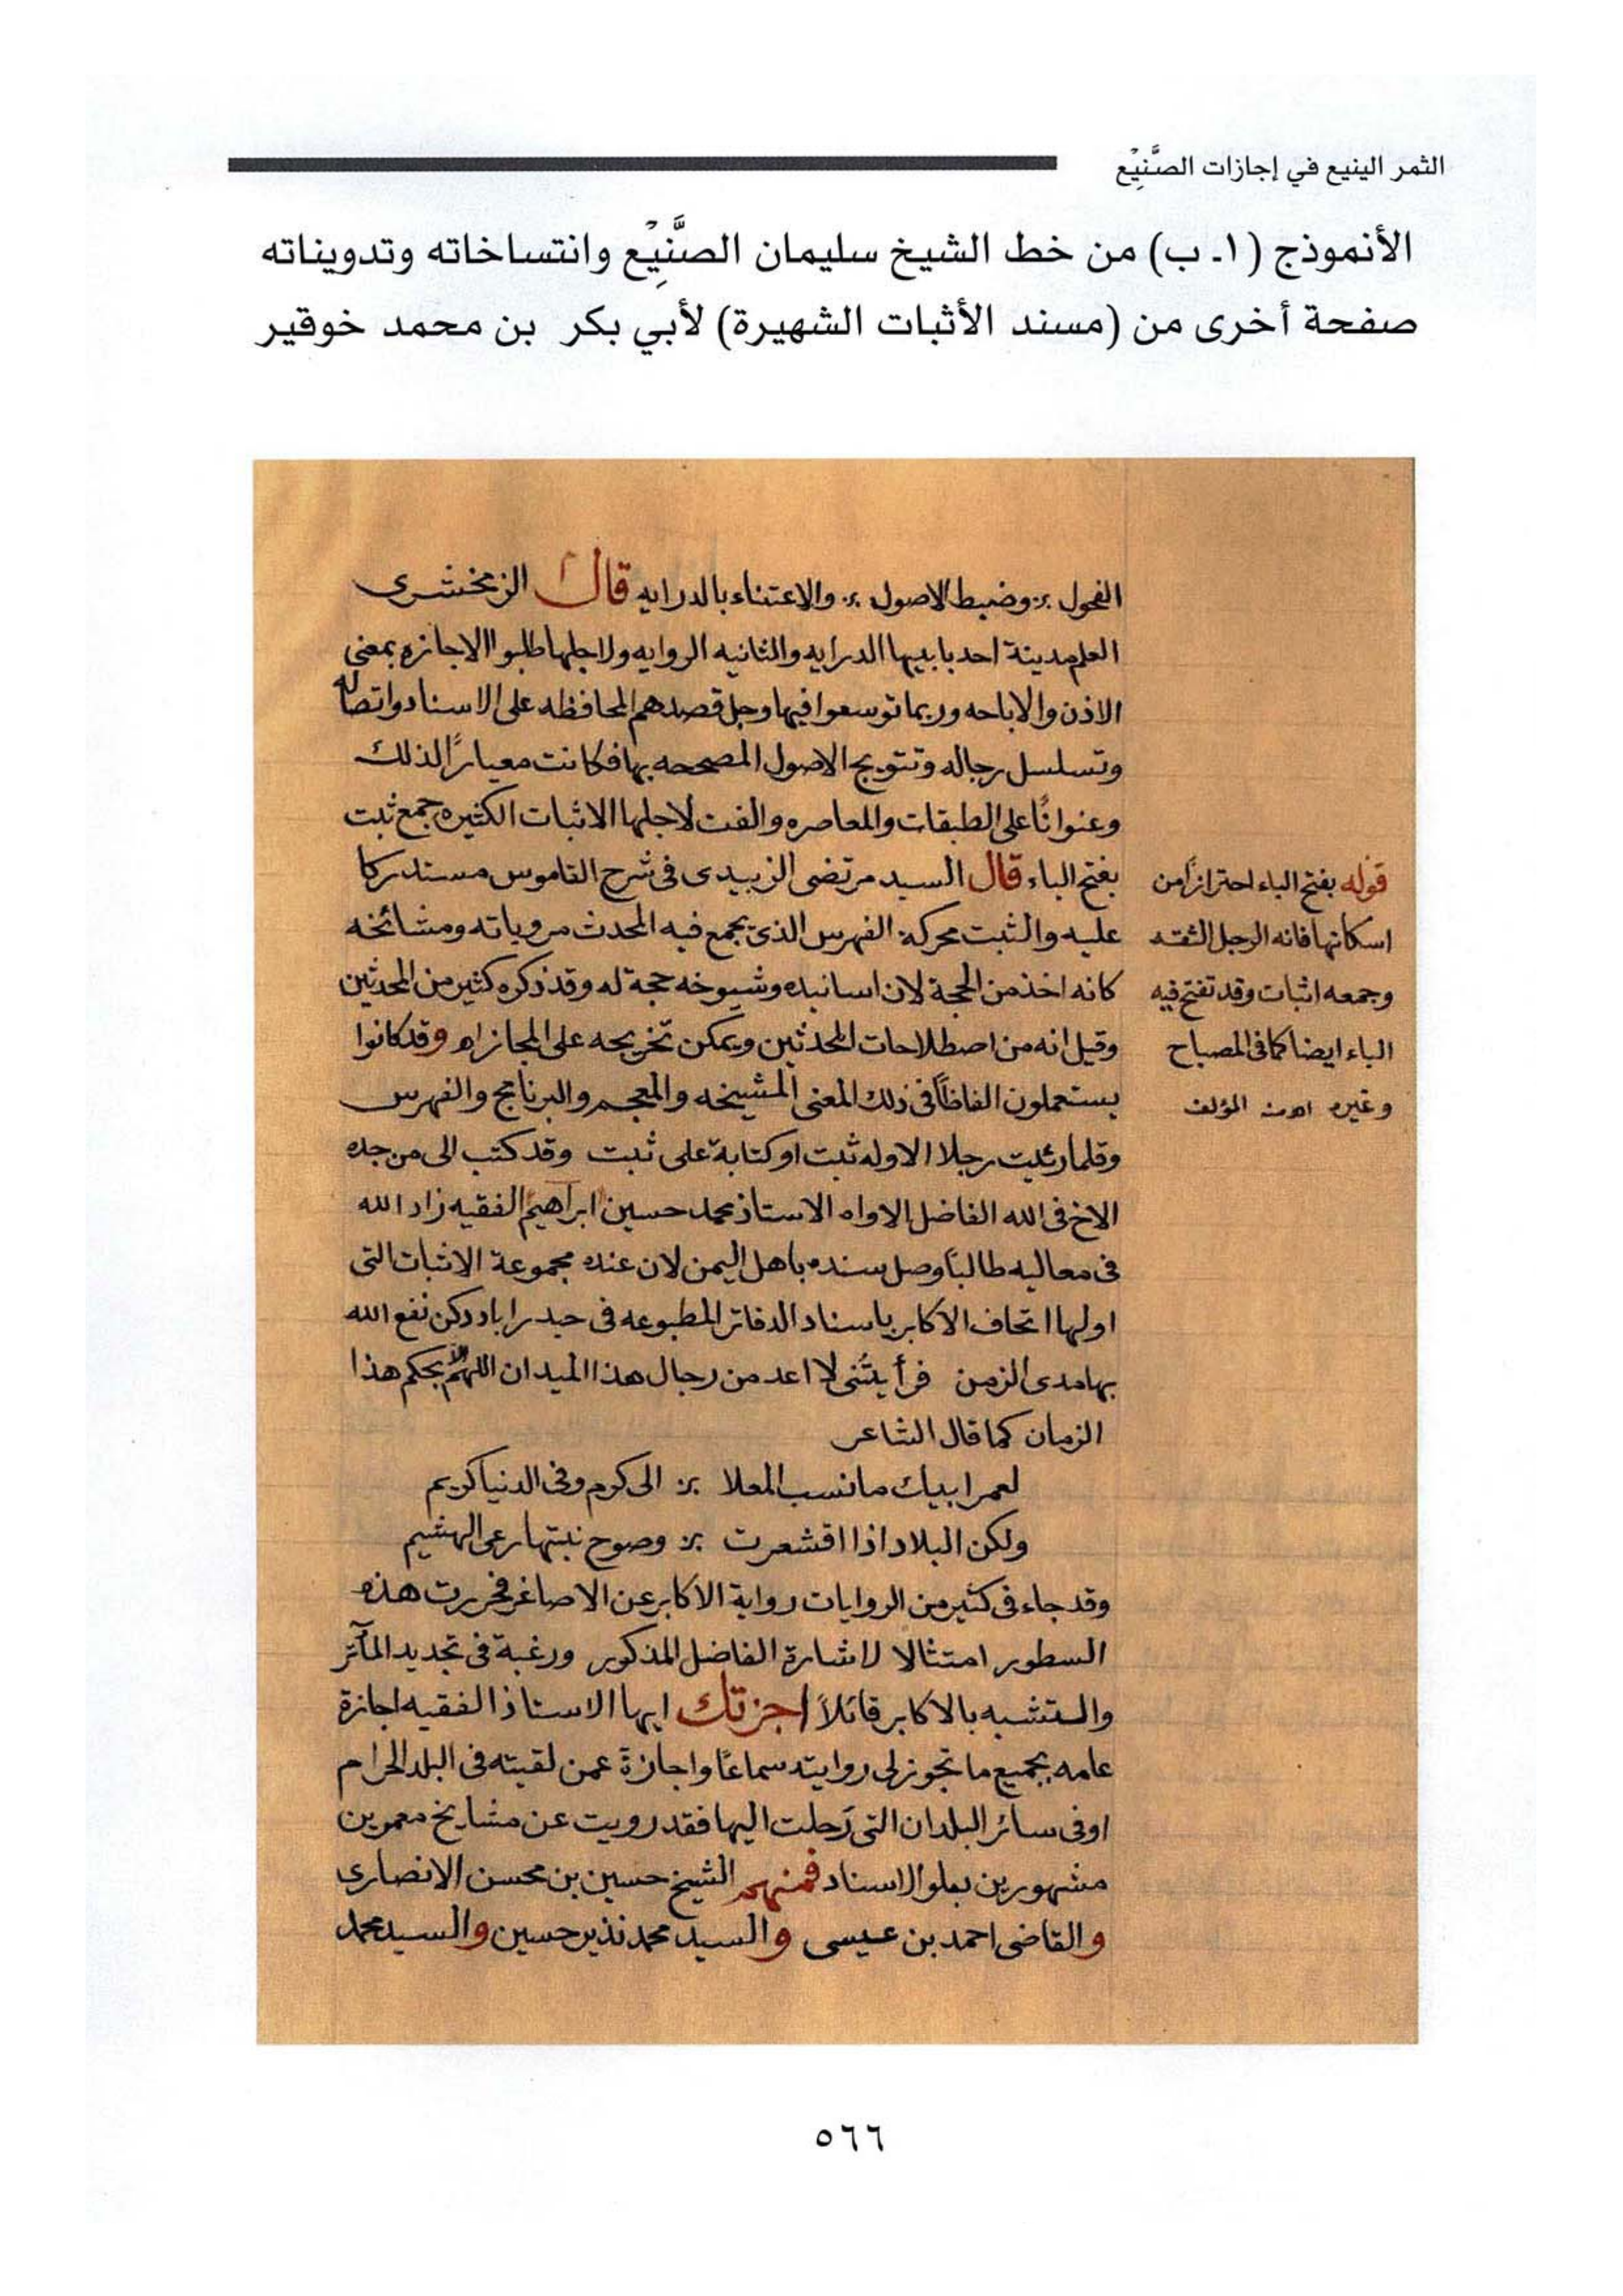 الثمر الينيع في إجازات الصَّنِيْع
الأنموذج (١ـ ب) من خط الشيخ سليمان الصَّنِيْع وانتساخاته وتدويناته
صفحة أخرى من (مسند الأثبات الشهيرة) لأبي بكر بن محمد خوقير
الفحول ؞ وضبط الاصول ؞ والاعتناء بالدرايه قال الزمخشرى
العلم مدينة احد بابيها الدرايه والثانيه الروايه ولاجلها طلبوا الاجازه بمعنى
الاذن والاباحه وربما توسعوا فيها وجل قصدهم المحافظه على الاسناد واتصاله
وتسلسل رجاله وتتويج الاصول المصححه بها فكانت معيارًا لذلك
وعنوانًا على الطبقات والمعاصره والفت لاجلها الاثبات الكثيره جمع ثبت
بفتح الباء قال السيد مرتضى الزبيدى فى شرح القاموس مستدركا
عليه والثبت محركة الفهرس الذى يجمع فيه المحدث مروياته ومشائخه
كانه اخذ من الحجة لان اسانيده وشيوخه حجة له وقد ذكره كثير من المحدثين
وقيل انه من اصطلاحات المحدثين ويمكن تخريجه على المجاز اه وقد كانوا
يستعملون الفاظًا فى ذلك المعنى المشيخه والمعجم والبرنامج والفهرس
وقلما رئيت رجلا الا وله ثبت او كتابة على ثبت وقد كتب الى من جده
الاخ فى الله الفاضل الاواه الاستاذ محمد حسين ابراهيم الفقيه زاد الله
فى معاليه طالبًا وصل سنده باهل اليمن لان عنده مجموعة الاثبات التى
اولها اتحاف الاكابر باسناد الدفاتر المطبوعه فى حيدراباد دكن نفع الله
بها مدى الزمن فرأيتُنى لا اعد من رجال هذا الميدان اللهم الا بحكم هذا
الزمان كما قال الشاعر
لعمر ابيك ما نسب المعلا ؞ الى كرم وفى الدنيا كريم
ولكن البلاد اذا اقشعرت ؞ وصوح نبتها رعى الهشيم
وقد جاء فى كثير من الروايات رواية الاكابر عن الاصاغر فحررت هذه
السطور امتثالا لاشارة الفاضل المذكور ورغبة فى تجديد المآثر
والتشبه بالاكابر قائلاً اجزتك ايها الاستاذ الفقيه اجازة
عامه بجميع ما تجوز لى روايته سماعًا واجازة عمن لقيته فى البلد الحرام
او فى سائر البلدان التى رَحلت اليها فقد رويت عن مشايخ معمرين
مشهورين بعلو الاسناد فمنهم الشيخ حسين بن محسن الانصارى
والقاضى احمد بن عيسى والسيد محمد نذير حسين والسيد محمد
قوله بفتح الباء احترازًا من
اسكانها فانه الرجل الثقه
وجمعه اثبات وقد تفتح فيه
الباء ايضا كما فى المصباح
وغيره اه المؤلف
٥٦٦